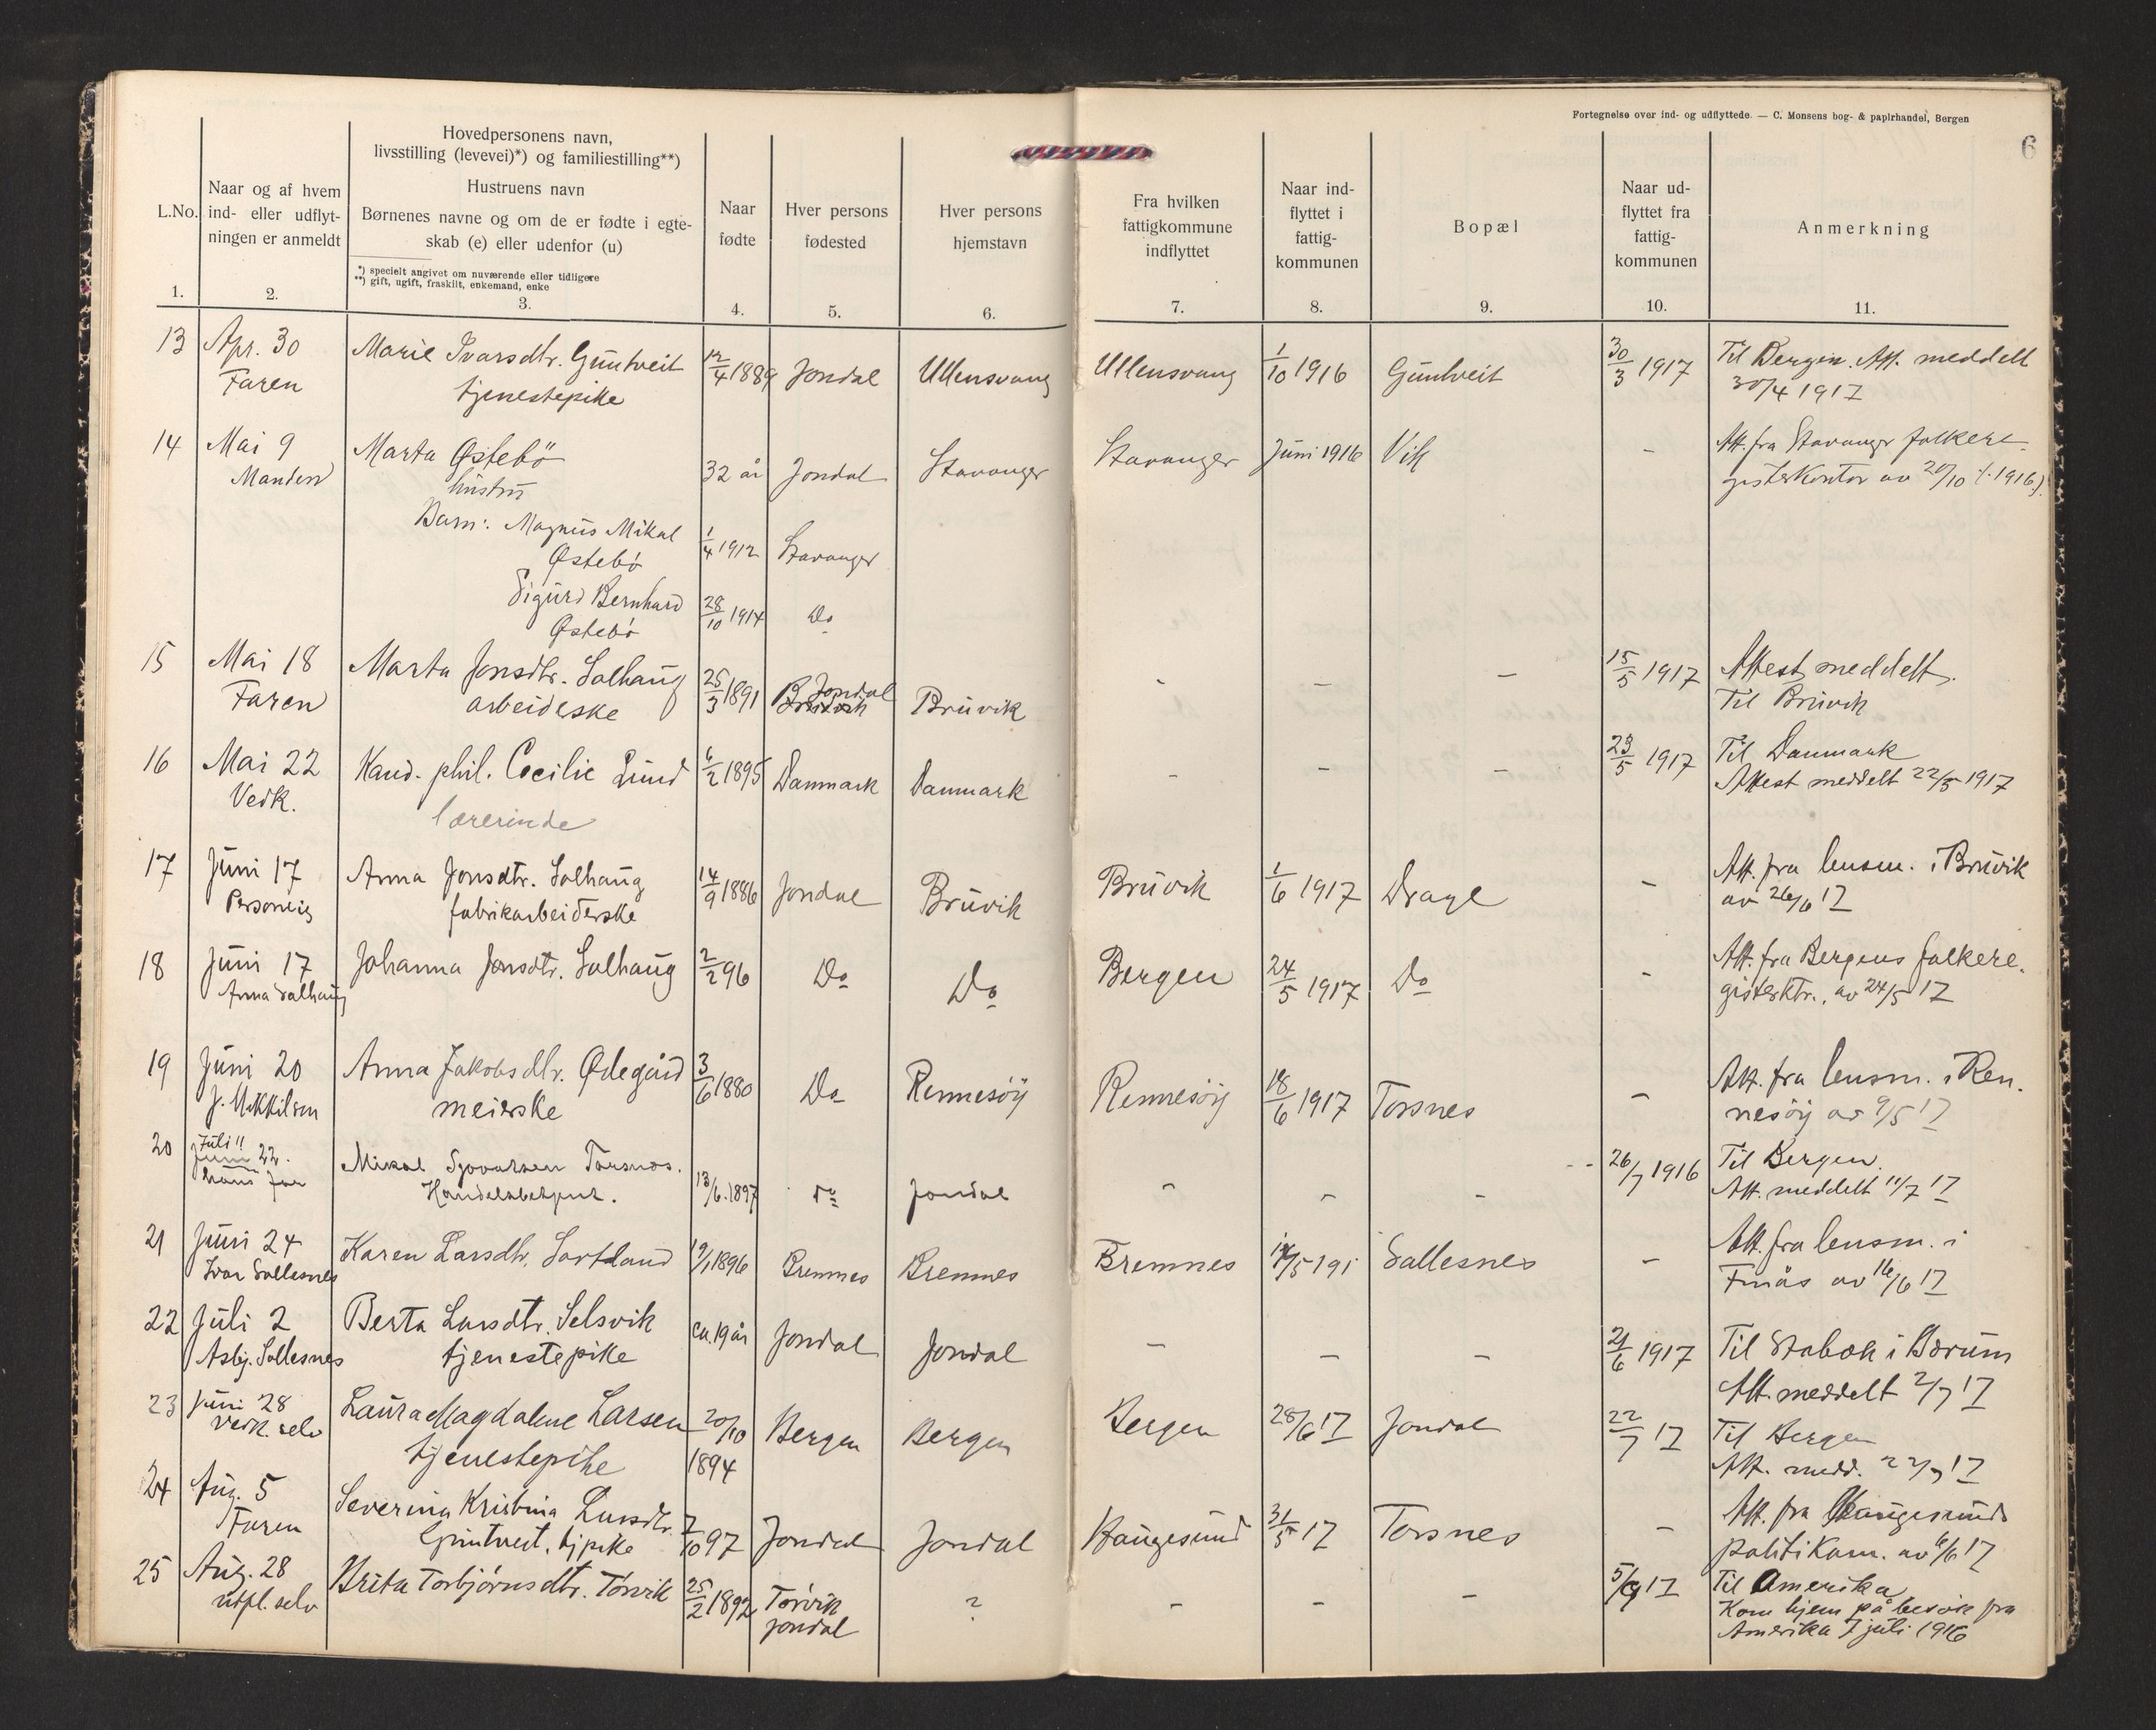 Fortegnelse over ind- og udflyttede. — C. Monsens bog- & papirhandel, Bergen
6
L.No.
1.
Naar og af hvem
ind- eller udflyt-
ningen er anmeldt
2.
Hovedpersonens navn,
livsstilling (levevei)*) og familiestilling**)
Hustruens navn
Børnenes navne og om de er fødte i egte-
skab (e) eller udenfor (u)
*) specielt angivet om nuværende eller tidligere
**) gift, ugift, fraskilt, enkemand, enke
3.
Naar
fødte
4.
Hver persons
fødested
5.
Hver persons
hjemstavn
6.
Fra hvilken
fattigkommune
indflyttet
7.
Naar ind-
flyttet i
fattig-
kommunen
8.
Bopæl
9.
Naar ud-
flyttet fra
fattig-
kommunen
10.
Anmerkning
11.
13 Apr. 30 Marie Ivarsdtr. Guntveit 12/4 1889 Jondal Ullensvang Ullensvang 1/10 1916 Guntveit 30/3 1917 Til Bergen. Att. meddelt
Faren tjenestepike 30/4 1917
14 Mai 9 Marta Østebö 32 år Jondal Stavanger Stavanger Juni 1916 Vik - Att. fra Stavanger folkere-
Manden hustru gisterkontor av 20/10 (1916).
Barn: Magnus Mikal 1/4 1912 Stavanger
Østebö
Sigurd Bernhard 28/10 1914 Do
Østebö
15 Mai 18 Marta Jonsdtr. Solhaug 25/3 1891 Jondal Bruvik - - - 15/5 1917 Attest meddelt.
Faren arbeiderske Til Bruvik
16 Mai 22 Kand. phil. Cecilie Lund 6/2 1895 Danmark Danmark - - - 23/5 1917 Til Danmark
Vedk. lærerinde Attest meddelt 22/5 1917
17 Juni 17 Anna Jonsdtr. Solhaug 14/9 1886 Jondal Bruvik Bruvik 1/6 1917 Drage - Att. fra lensm. i Bruvik
Personlig fabrikarbeiderske av 26/6 17
18 Juni 17 Johanna Jonsdtr. Solhaug 2/2 96 Do Do Bergen 24/5 1917 Do - Att. fra Bergens folkere-
Anna Solhaug gisterktr. av 24/5 17
19 Juni 20 Anna Jakobsdtr. Ødegård 3/6 1880 Do Rennesöy Rennesöy 18/6 1917 Torsnes - Att. fra lensm. i Ren-
J. Mikkilsen meierske nesöy av 9/5 17
20 Juli 11 Mikal Torsnes. 13/6. 1897 do Jondal - - - 26/7 1916 Til Bergen.
Hans far Handelsbetjent. Att. meddelt 11/7 17
21 Juni 24 Karen Larsdtr. Sortland 19/1 1896 Bremnes Bremnes Bremnes 14/5 191 Sallesnes - Att. fra lensm. i
Ivar Sallesnes Finås av 16/6 17
22 Juli 2 Berta Larsdtr. Selsvik ca. 19 år Jondal Jondal - - - 21/6 1917 Til Stabæk i Bærum
Asbj. Sallesnes tjenestepike Att. meddelt 2/7 17
23 Juni 28 Laura Magdalene Larsen 20/10 Bergen Bergen Bergen 28/6 17 Jondal 22/7 17 Til Bergen
Vedk. selv tjenestepike 1894 Att. medd. 22/7 17
24 Aug. 5 Severina Kristina Larsdtr. 7/10 97 Jondal Jondal Haugesund 31/5 17 Torsnes - Att. fra Haugesunds
Faren Guntveit, tj.pike politikam. av 6/6 17
25 Aug. 28 Brita Torbjörnsdtr. Törvik 25/2 1892 Törvik ? - - - 5/9 17 Til Amerika
utfl. selv Jondal Kom hjem på besök fra
Amerika 7 juli 1916